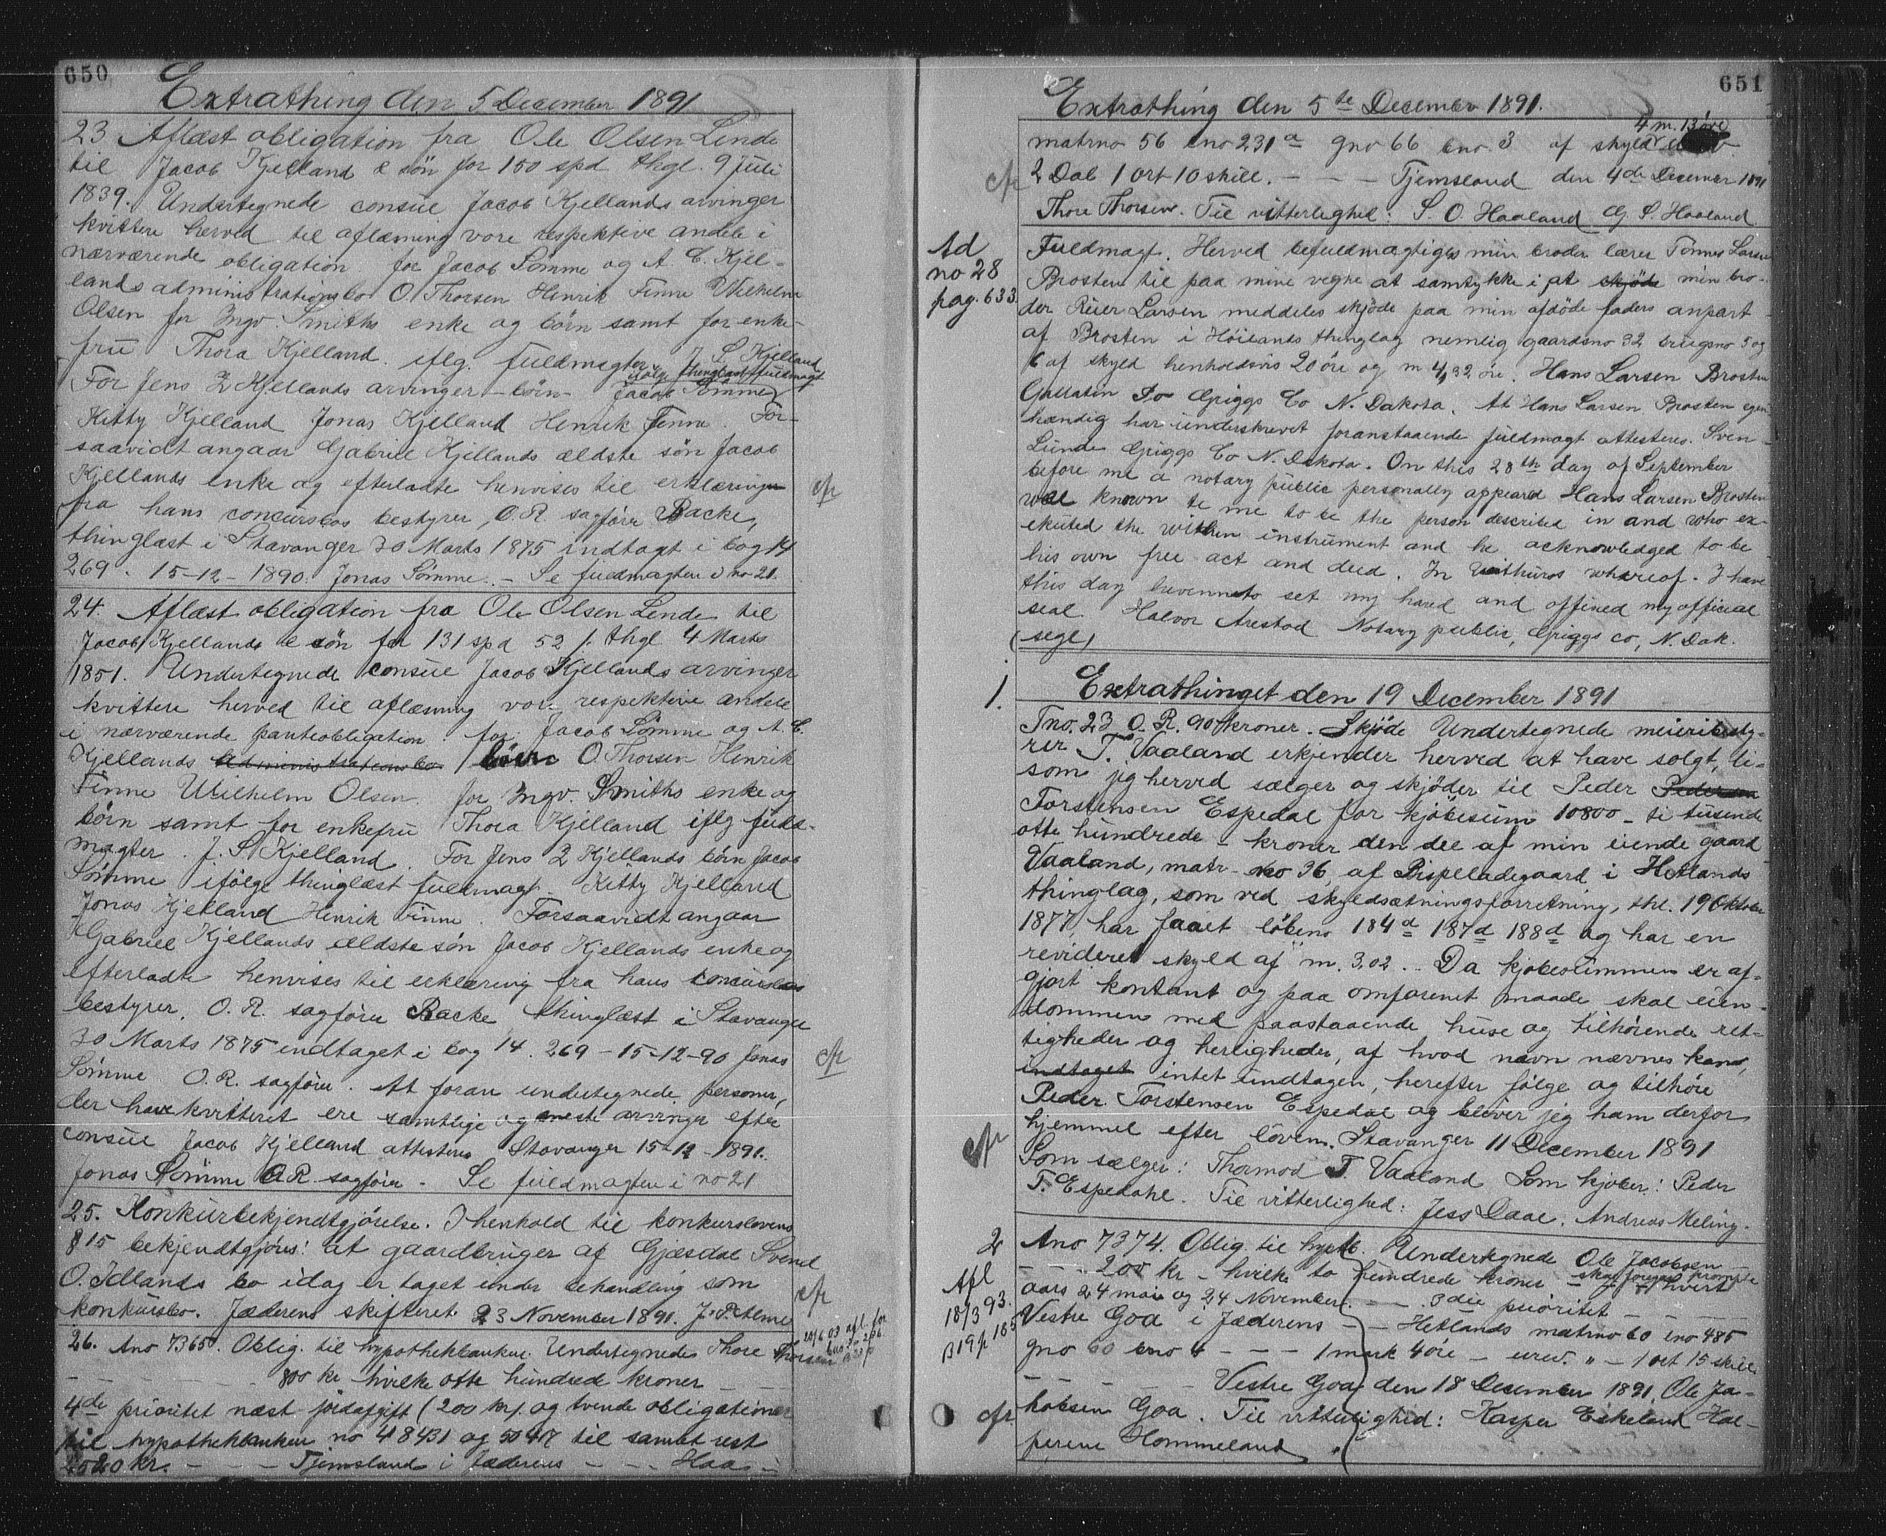 650
Extrathing den 5 December 1891
23 Aflæst obligation fra Ole Olsen Lende
til Jacob Kjelland & søn for 150 spd thgl. 9 Juli
1839. Undertegnede consul Jacob Kjellands arvinger
kvittere herved til aflæsning vore respektive andele i
nærværende obligation for Jacob Sømme og A. C. Kjel-
lands administrationsbo O. Thorsen Henrik Finne Wilhelm
Olsen for Ingv. Smiths enke og børn samt for enke-
fru Thora Kjelland iflg. fuldmagter J. S. Kjelland
For Jens Z Kjellands arvinger - børn - ifølg thinglæst fuldmagt Jacob Sømme
Kitty Kjelland Jonas Kjelland Henrik Finne. For-
saavidt angaar Gabriel Kjellands ældste søn Jacob
Kjellands enke og efterladte henvises til erklæringen
fra hans concursbos bestyrer, O. R. sagfører Backe,
thinglæst i Stavanger 30 Marts 1875 indtagt i bog 14
269. 15-12-1890. Jonas Sømme. - Se fuldmagten i no 21.
cfr
24. Aflæst obligation fra Ole Olsen Lende til
Jacob Kjellands & søn for 131 spd 52 /. thgl 4 Marts
1851. Undertegnede consul Jacob Kjellands arvinger
kvittere herved til aflæsning vore respektive andele
i nærværende panteobligation for Jacob Sømme og A. C.
Kjellands administrationsbo / børn O. Thorsen Henrik
Finne Wilhelm Olsen for Ingv. Smiths enke og
børn samt for enkefru Thora Kjelland iflg fuld-
magter. J. S. Kjelland. For Jens Z Kjellands børn Jacob
Sømme ifølge thinglæst fuldmagt - Kitty Kjelland
Jonas Kjelland Henrik Finne. Forsaavidt angaar
Gabriel Kjellands ældste søn Jacob Kjellands enke og
efterladte henvises til erklæring fra hans concursbos
bestyrer, O. R. sagfører Backe thinglæst i Stavanger
30 Marts 1875 indtaget i bog 14. 269 - 15-12-90 Jonas
Sømme O. R. sagfører. At foran undertegnede personer,
der have kvitteret ere samtlige og eneste arvinger efter
consul Jacob Kjelland attesteres Stavanger 15-12-1891.
Jonas Sømme O.R sagfører - Se fuldmagten i no 21
cfr
25. Konkursbekjendtgjørelse. I henhold til konkurslovens
§ 15 bekjendtgjøres: at gaardbruger af Gjesdal Svend
O. Idlands bo idag er taget under behandling som
konkursbo. Jæderens skifteret 23 November 1891. J. P.
cfr
26. Ano 7365. Oblig. til hypothekbanken. Undertegnede Thore Thorsen
- - - - 800 kr hvilke otte hundred kroner - -
4de prioritet næst jordafgift (200 kr). og tvende obligationer
til hypothekbanken no 48431 og til samlet rest
2020 kr. - - - Tjemsland i Jæderens - - - Haa -
651
Extrathing den 5te December 1891.
matrno 56 lno 231a gno 66 bno 3 af skyld 4 m. 13 øre
2 Dal 1 ort 10 skill. - - - Tjemsland den 4de December 1891
Thore Thorsen. Til vitterlighed: S. O. Haaland G. S. Haaland
cfr
Ad
no 28
pag. 633.
Fuldmagt. Herved befuldmægtiges min broder lærer Tønnes Larsen
Brosten til paa mine vegne at samtykke i, at skjøde min bro-
der Reier Larsen meddeles skjøde paa min afdøde faders anpart
af Brosten i Høilands thinglag nemlig gaardsno 32 brugsno 5 og
6 af skyld henholdsvis 20 øre og m 4,32 øre. Hans Larsen Brosten
Gallatin Po Griggs Co N. Dakota. At Hans Larsen Brosten egen-
hændig har underskrevet foranstaaende fuldmagt attesteres. Sven
Lunde Griggs Co N. Dakota. On this 28th day of September
before me a notary public personally appeard Hans Larsen Brosten
well known to me to be the person described in and who ex-
ekuted the within instrument and he acknowledged to be
his own free act and deed. In whereof. I have
this day hereunto set my hand and affixed my official
seal Halvor Arestad Notary public, Griggs co, N. Dak.
(segl)
Extrathinget den 19 December 1891
1.
Tno. 23 O. R. 90 kroner. Skjøde Undertegnede meieribesty-
rer T. Vaaland erkjender herved at have solgt, li-
som jeg herved sælger og skjøder til Peder Pedersen
Torstensen Espedal for kjøbesum 10800 - ti tusende
otte hundrede - kroner den del af min eiende gaard
Vaaland, matr. no 36, af Bispeladegaard i Hetlands
thinglag, som ved skyldsætningsforretning, thl. 19 Oktober
1877, har faaet løbeno 184d 187d 188d og har en
revideret skyld af m. 3,02.. Da kjøbesummen er af-
gjort kontant og paa omforenet maade skal eien-
dommen med paastaaende huse og tilhørende ret-
tigheder og herligheder, af hvad navn nævnes kand,
indtaget intet undtagen, herefter følge og tilhøre
Peder Torstensen Espedal og bliver jeg ham derfor
hjemmel efter loven. Stavanger 11 December 1891
Som sælger: Thormod T. Vaaland Som kjøber: Peder
T. Espedahl. Til vitterlighed: Jess Daae. Andreas Meling.
cfr
2
Ano 7374. Oblig. til hypb. Undertegnede Ole Jacobsen -
- - - 200 kr - hvilke to hundrede kroner - skal hvert
aars 24 mai og 24 November. - - 3die prioritet -
Vestre Goa i Jæderens - - Hetlands matrno 60 lno 485
gno 60 bno 4 - - - 1 mark 4 øre - urev. " - 1 ort 15 skill
- - - - - Vestre Goa den 18 December 1891. Ole Ja-
kobsen Goa. Til vitterlighed: Kasper Eskeland Hal-
Hommeland
Afl
18/3 93.
B 19 p 185
cfr